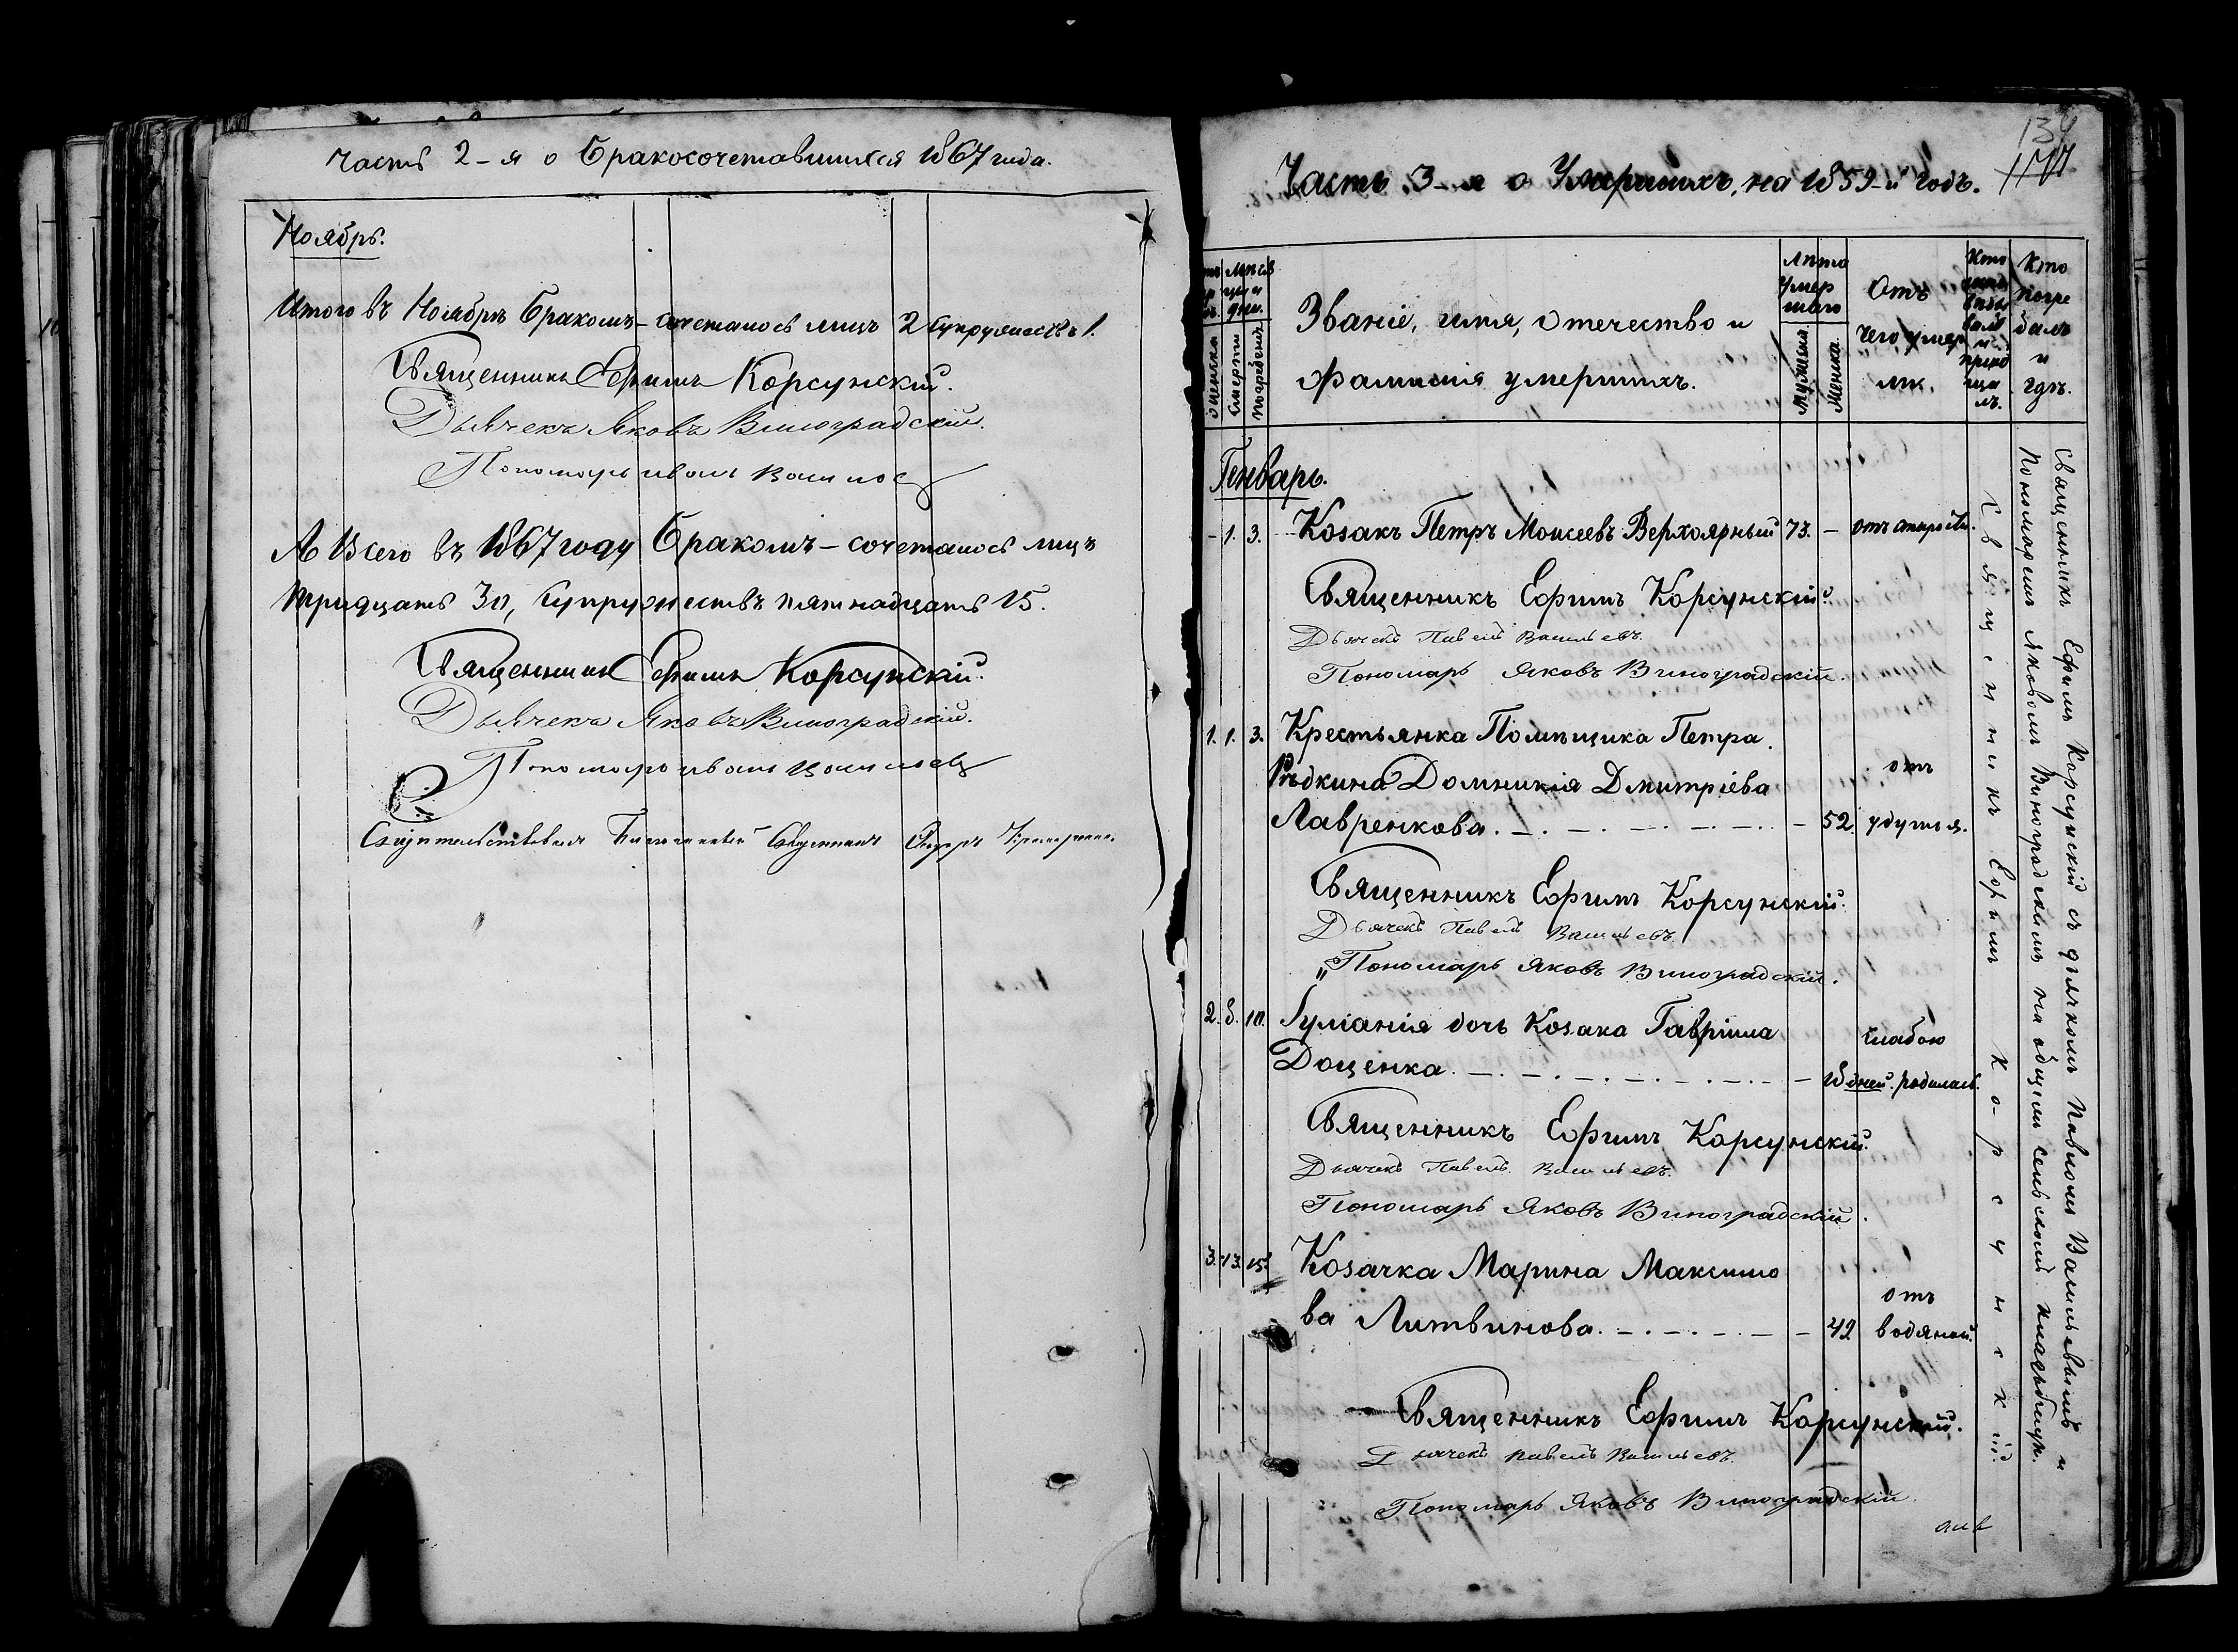 Часть 2-я о Бракосочетавшихся 1867 года.
Ноябрь.
Итого въ Ноябрѣ Бракомъ-сочеталось лицъ 2 супружествъ 1.
Священникъ Ефимъ Корсунскій.
Дьячекъ Яковъ Виноградскій.
Пономарь Иванъ
А Всего въ 1867 году Бракомъ-сочеталось лицъ
тридцать 30, супружествъ пятнадцать 15.
Священникъ Ефимъ Корсунскій.
Дьячекъ Яковъ Виноградскій.
Пономарь Иванъ
Свидѣтельствовалъ Благочинный Священникъ
139
177
Часть 3-я о Умершихъ, на 1859-й годъ.
Мѣсяцъ и дни.
смерти
погребенія
Званіе, имя, отечество и
фамилія умершихъ.
Лѣта
умер
шаго
Мужеска
Женска
Отъ
чего умер
ли.
Кто
исповѣдывалъ
и
пріоб
ща
лъ.
Кто
погре
балъ
и
гдѣ.
Генварь.
- 1. 3. Козакъ Петръ Моисеевъ Верхоярный 73. — отъ старости.
Священникъ Ефимъ Корсунскій.
Дьячекъ Павелъ Васильевъ.
Пономарь Яковъ Виноградскій.
1. 1. 3. Крестьянка Помѣщика Петра
Рѣдкина Домникія Дмитріева
отъ
Лавренкова. — 52. удушья.
Священникъ Ефимъ Корсунскій.
Дьячекъ Павелъ Васильевъ.
Пономарь Яковъ Виноградскій.
2. 8. 10. Іуліанія дочь Козака Гавріила
слабою
Доценка. — 18 дней. родилась.
Священникъ Ефимъ Корсунскій.
Дьячекъ Павелъ Васильевъ.
Пономарь Яковъ Виноградскій.
3. 13. 15. Козачка Марина Максимо
отъ
ва Литвинова. — 42 водяной.
Священникъ Ефимъ Корсунскій.
Дьячекъ Павелъ Васильевъ.
Пономарь Яковъ Виноградскій.
Священникъ Ефимъ Корсунскій
Священникъ Ефимъ Корсунскій съ дьячкомъ Павломъ Васильевымъ и
Пономаремъ Яковомъ Виноградскимъ на общемъ сельскомъ кладбищѣ.